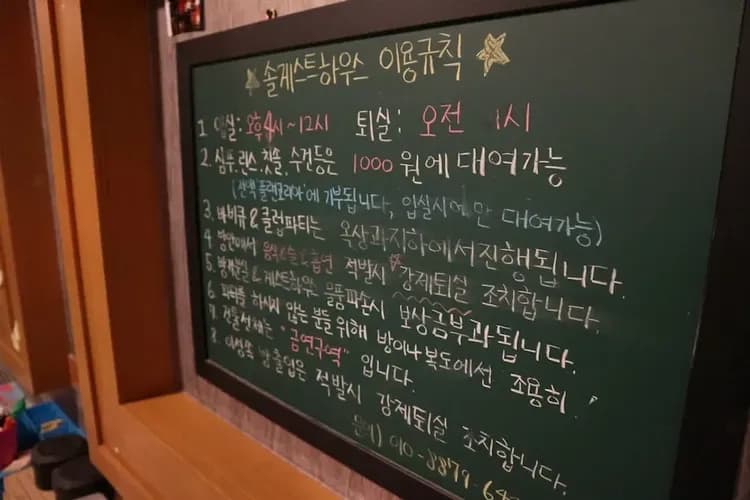 솔게스트하우스 이용규칙
1. 입실: 오후4시~12시 퇴실: 오전 11시
2. 샴푸, 린스, 칫솔, 수건등은 1000원에 대여가능
에 기부됩니다, 입실시에만 대여가능)
3. 바비큐 & 클럽파티는 옥상과지하에서진행됩니다.
4. 방안에서 음식&술&흡연 적발시 강제퇴실 조치합니다.
5. & 게스트하우스 물품파손시 보상금부과됩니다.
6. 파티를 하시지 않는 분들을 위해 방이나 복도에선 조용히!
7. 건물전체는 "금연구역" 입니다.
8. 이성쪽 방출입은 적발시 강제퇴실 조치합니다.
문의) 010-8879-64